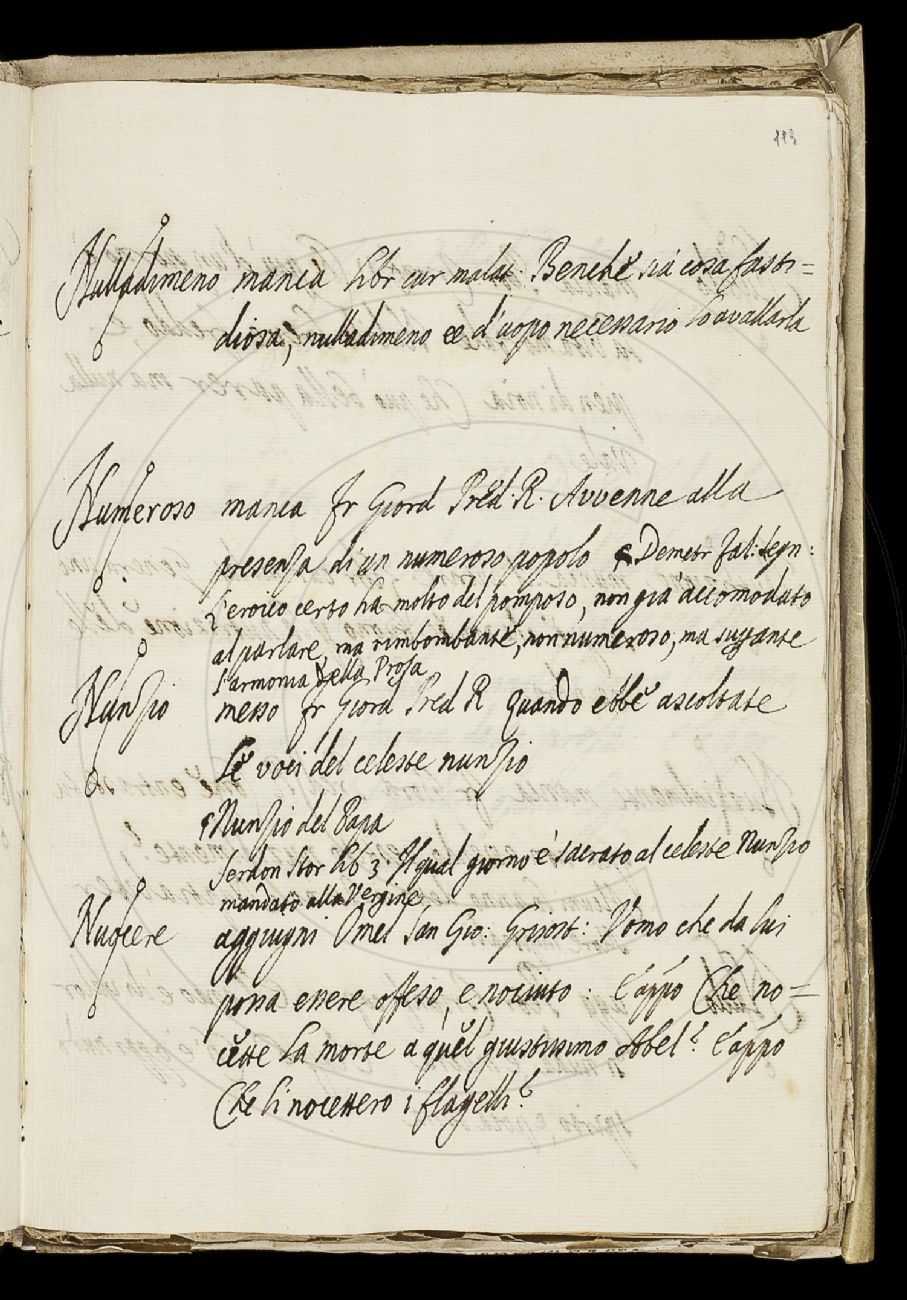 113
Nulladimeno manca libr cur malat: Benchè sia cosa fasti=
diosa, nulladimeno ee d'uopo necessario lo avallarla
Numeroso manca fr Giord Pred. R. Avvenne alla
presenza di un numeroso popolo e Demetr fal: segn:
L'eroico certo ha molto del pomposo, non già accomodato
al parlare, ma rimbombante, non numeroso, ma
l'armonia della Prosa
Nunzio messo fr Giord Pred R quando ebbe ascoltate
Le voci del celeste nunzio
Nunzio del Papa
Serdon Stor lib 3. Il qual giorno è sacrato al celeste Nunzio
mandato alla Vergine
Nuocere aggiugni Omel San Gio: Grisost: Uomo che da lui
possa essere offeso, e nociuto: e appo Che no=
cette la morte a quel giustissimo Abel? e appo
Che li nocettero i flagelli?